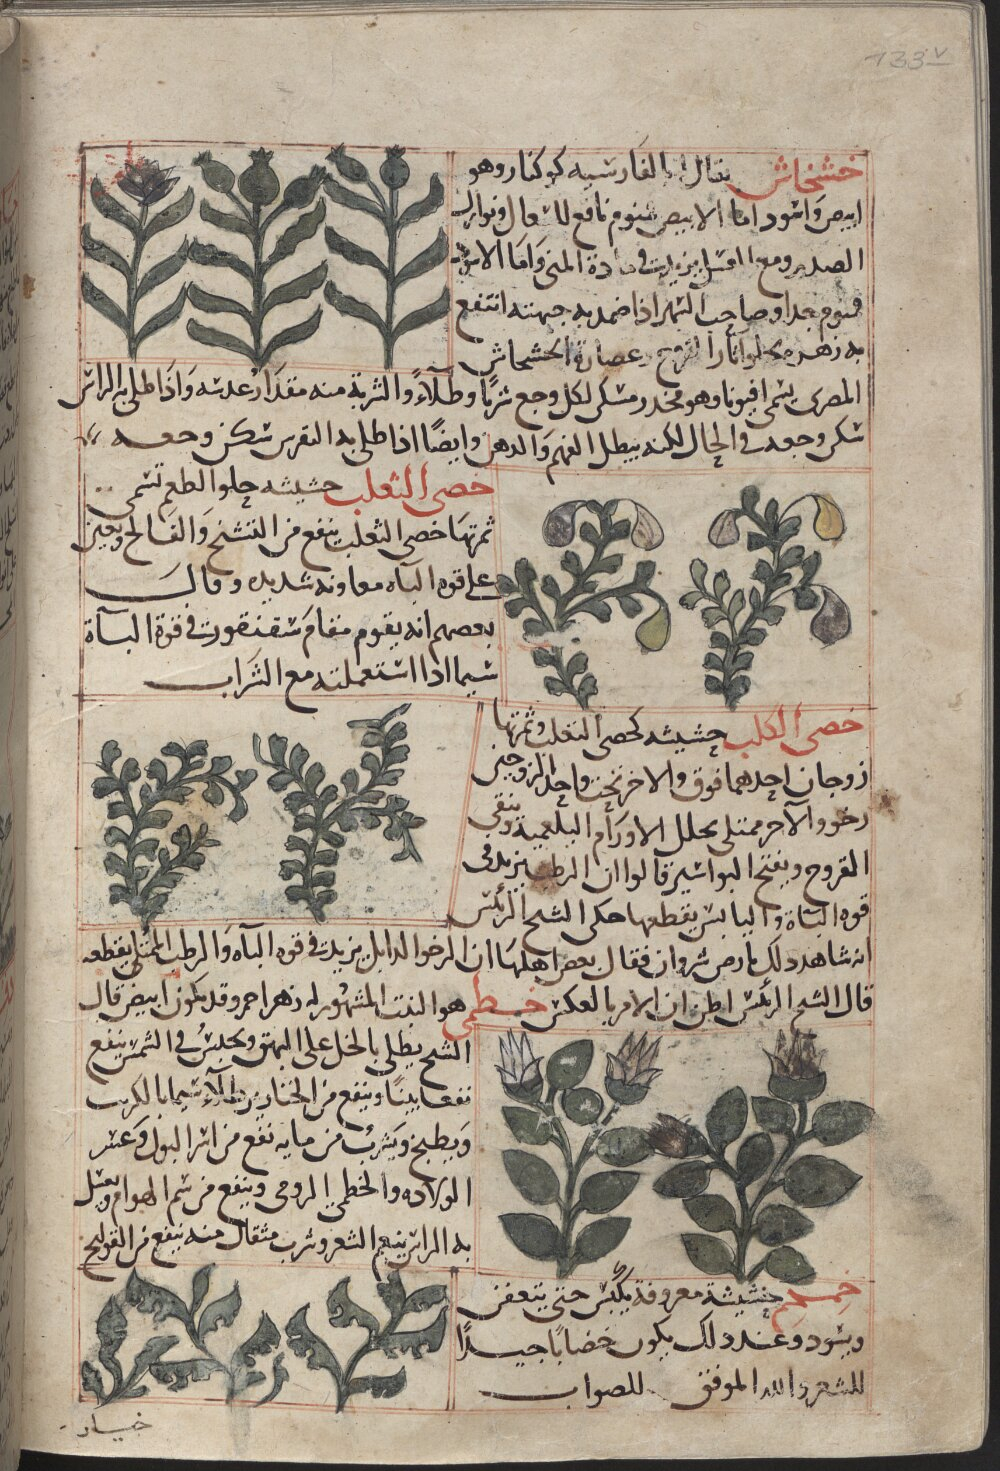 133v
خشخاش يقال له بالفارسيه كوكنار وهو
ابيض واسود اما الابيض منوم نافع للسعال ونوازل
الصدر ومع العسل يزيد في مادة المنى واما الاسود
منوم جدا وصاحب السهر اذا ضمد به جبهته انتفع
به زهره يجلو اثار القروح عصارة الخشخاش
المصرى يسمى افيونا وهو مخدر مسكن لكل وجع شربا وطلاءً والشربة منه مقدار عدسه واذا طلى به الراس
سكن وجعه في الحال لكنه يبطل الفهم والذهن وايضًا اذا طلى به النقرس سكن وجعه
خصى الثعلب حشيشه حلوا الطعم تسمى
ثمرتها خصى الثعلب ينفع من التشنج والفالج ويعين
على قوه الباه معاونه شديده وقال
بعضهم انه يقوم مقام سقنقور في قوة الباه
سيما اذا استعملته مع الشراب
خصى الكلب حشيشه كخصى الثعلب وثمرتها
زوجان احدهما فوق والاخر تحت واحد الزوجين
رخو والاخر ممتلى يحلل الاورام البلغمية وينقى
القروح ويفتح البواسير قالوا ان الرطب يزيد في
قوه الباه واليابس يقطعها حكى الشيخ الرئيس
انه شاهد ذلك بارض شروان فقال بعض اهلها ان الرخو الذابل يزيد في قوه الباه والرطب الممتلى يقطعه
قال الشيخ الرئيس اظن ان الامر بالعكس خطمى هو النبت المشهور له زهر احمر وقد يكون ابيض قال
الشيخ يطلى بالخل على البهق ويجلس في الشمس ينفع
نفعا بينا وينفع من الخنازير طلاء سيما بالكرنب
ويطبخ ويشرب من مايه نفع من اسر البول وعسر
الولاده والخطمى الرومى وينفع من سم الهوام ويغسل
به الراس ينعم الشعر وشرب مثقال منه ينفع من القولنج
خمخم حشيشة معروفة يكبس حتى يتعفن
ويسود وعند ذلك يكون خضابا جيدًا
للشعر والله الموفق للصواب
خيار